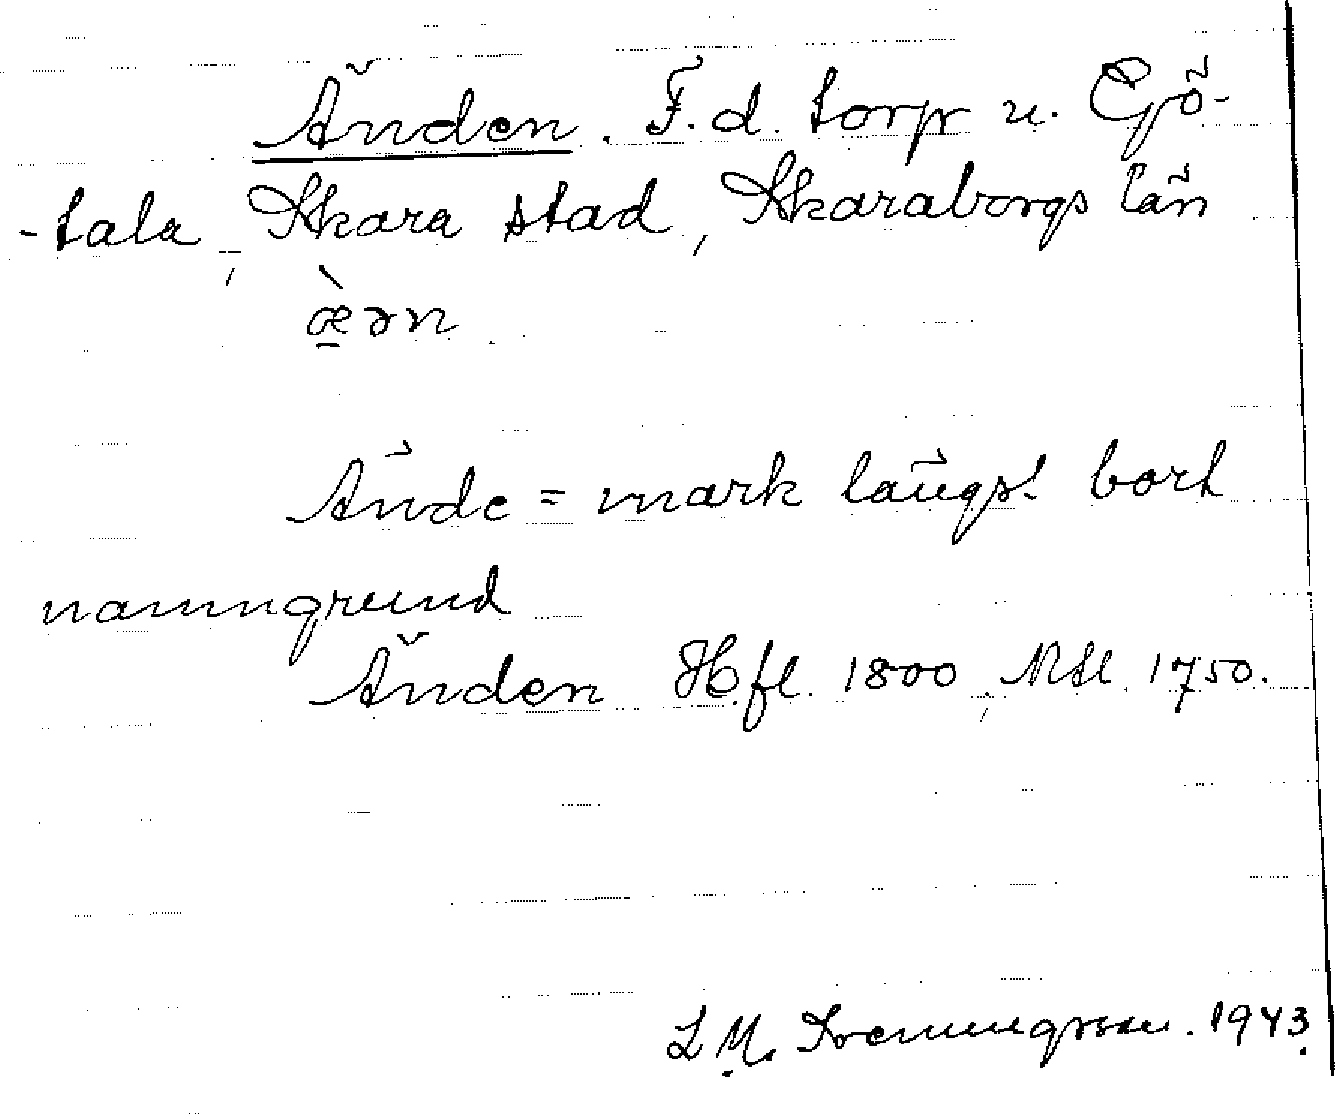 Änden. F.d. torp u. Gö-
-tala, Skara stad, Skaraborgs län
æ̀ən
Ände = mark längst bort
namngrund
Änden Hfl. 1800, Mtl. 1750.
L M. 1943